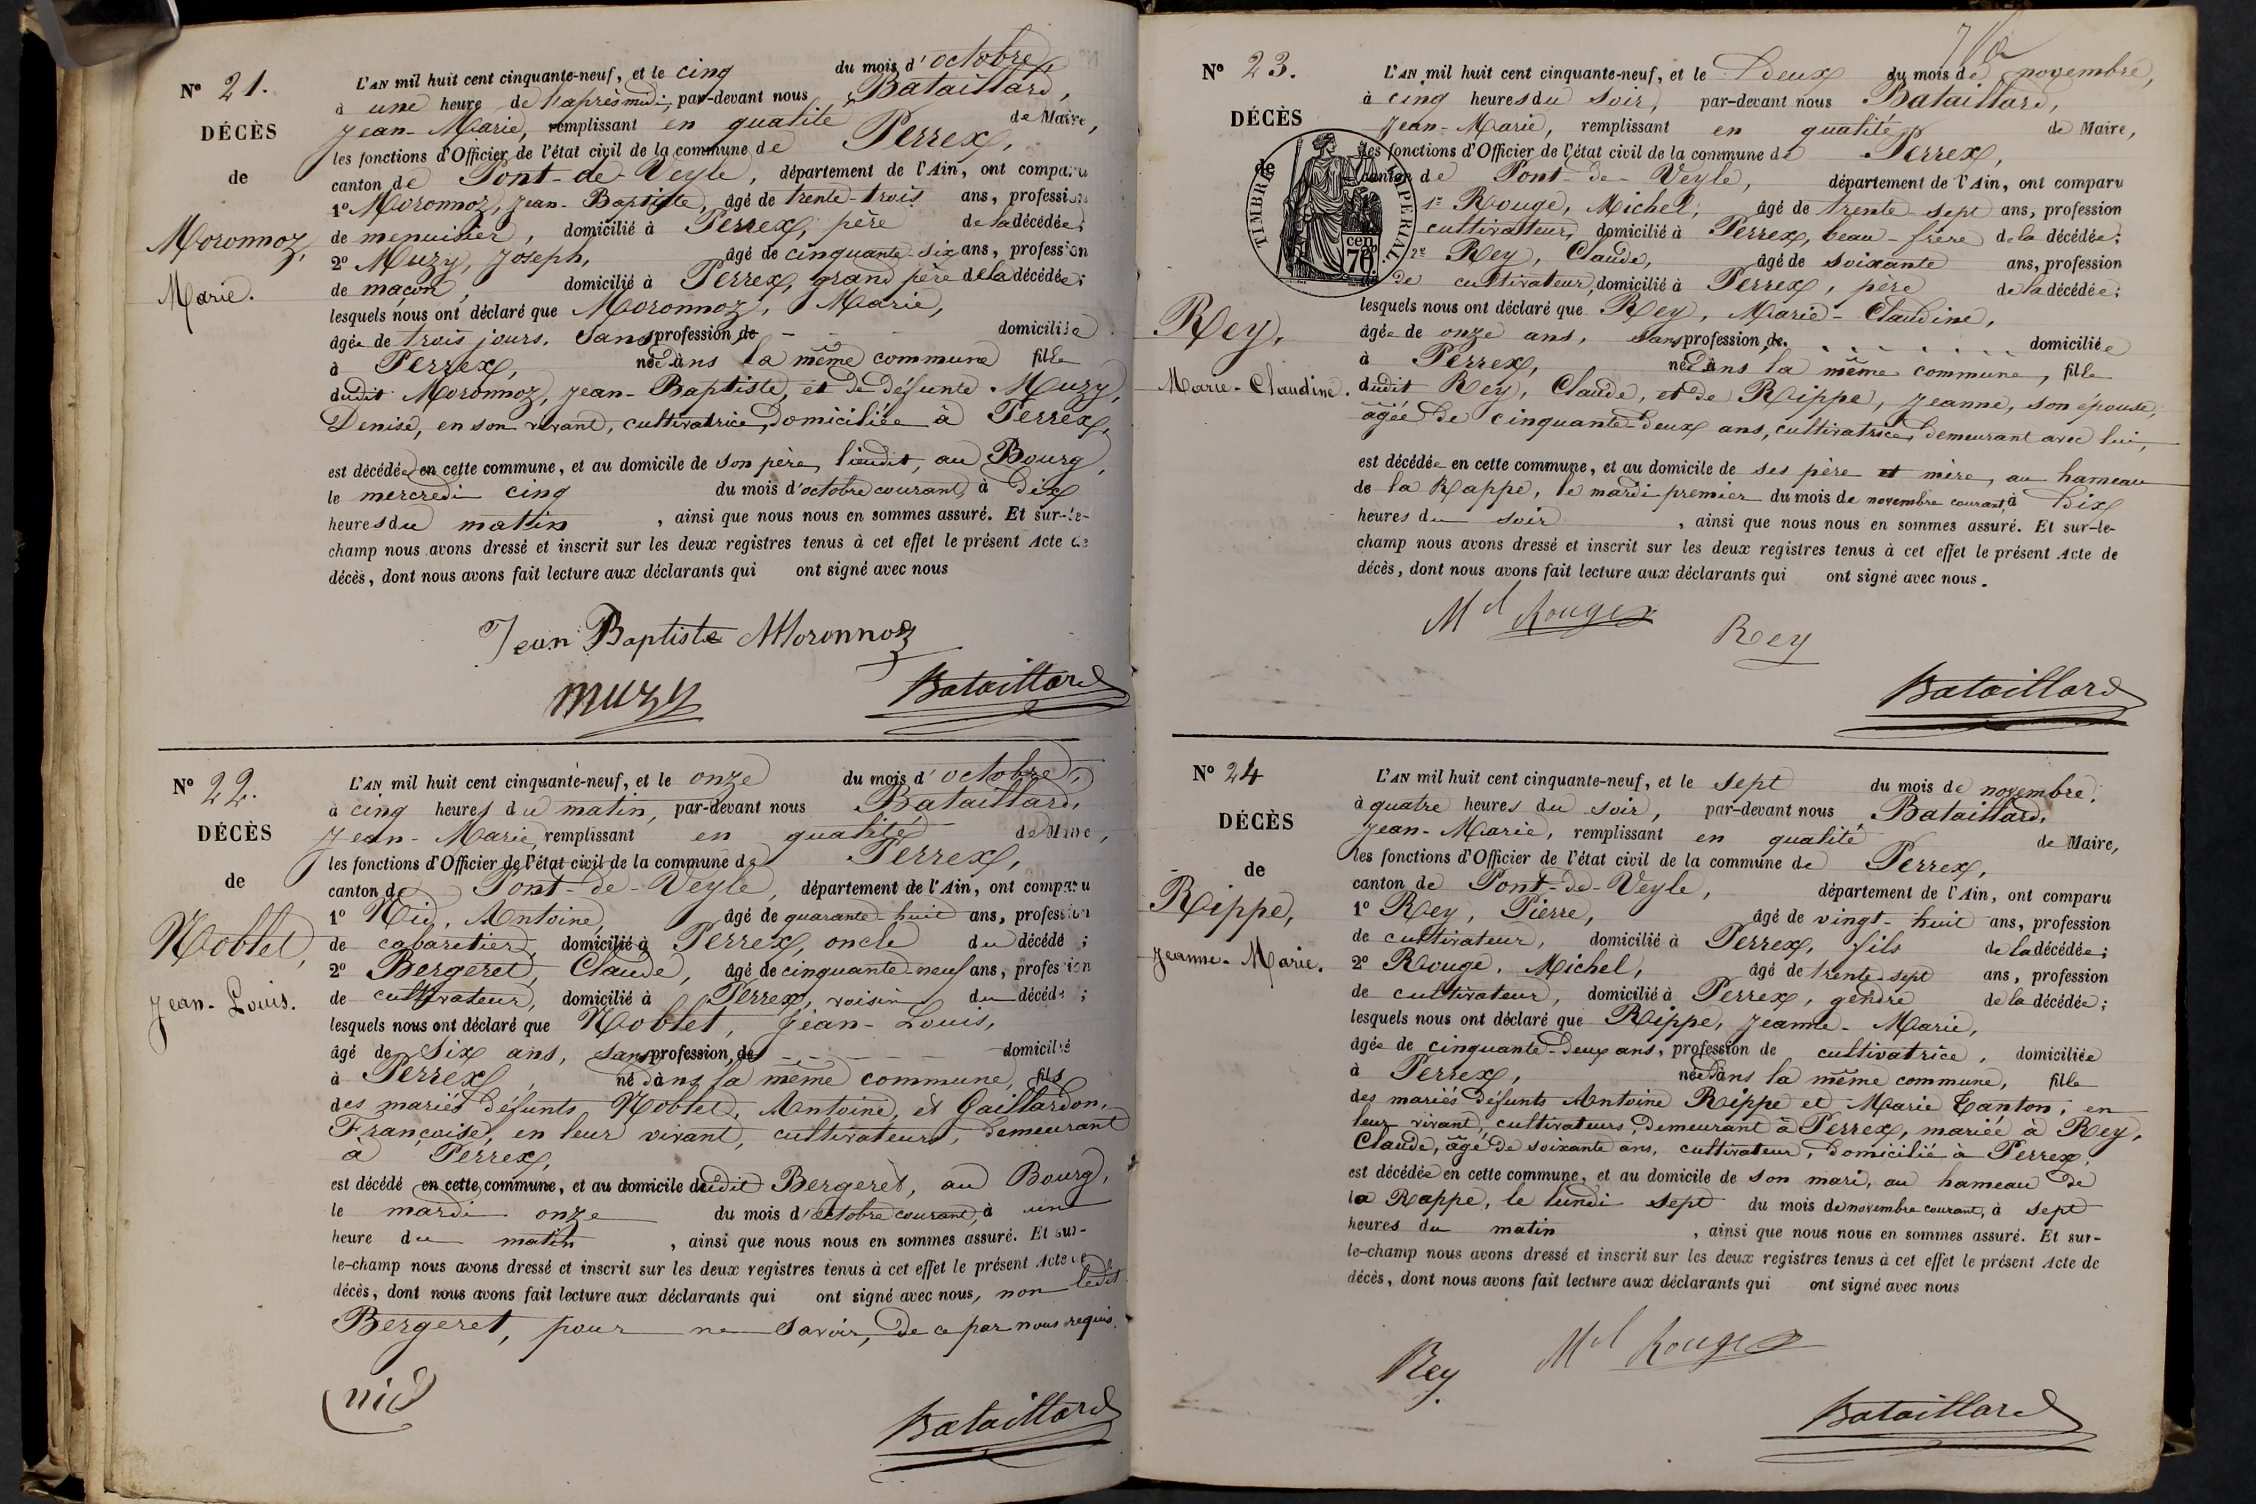 N° 21.
DÉCÈS
de
Moronnoz,
Marie.
L'AN mil huit cent cinquante-neuf, et le cinq du mois d'octobre,
à une heure de l'après midi, par-devant nous Bataillard,
Jean-Marie, remplissant en qualité de Maire,
les fonctions d'Officier de l'état civil de la commune de Perrex,
canton de Pont-de-Veyle, département de l'Ain, ont comparu
1° Moronnoz, Jean-Baptiste, âgé de trente-trois ans, profession
de menuisier, domicilié à Perrex, père de la décédée;
2° Muzy, Joseph, âgé de cinquante-six ans, profession
de maçon, domicilié à Perrex, grand père de la décédée;
lesquels nous ont déclaré que Moronnoz, Marie,
âgée de trois jours, sans profession de domiciliée
à Perrex, née dans la même commune fille
dudit Moronnoz, Jean-Baptiste, et de défunte Muzy,
Denise, en son vivant, cultivatrice, domiciliée à Perrex,
est décédée en cette commune, et au domicile de son père, lieudit, au Bourg,
le mercredi cinq du mois d'octobre courant, à dix
heures du matin, ainsi que nous nous en sommes assuré. Et sur-le-
champ nous avons dressé et inscrit sur les deux registres tenus à cet effet le présent Acte de
décès, dont nous avons fait lecture aux déclarants qui ont signé avec nous
Jean Baptiste Moronnoz
muzy
Bataillard
N° 22.
DÉCÈS
de
Noblet,
Jean-Louis.
L'AN mil huit cent cinquante-neuf, et le onze du mois d'octobre,
à cinq heures du matin, par-devant nous Bataillard,
Jean-Marie, remplissant en qualité de Maire,
les fonctions d'Officier de l'état civil de la commune de Perrex,
canton de Pont-de-Veyle, département de l'Ain, ont comparu
1° Nid, Antoine, âgé de quarante-huit ans, profession
de cabaretier, domicilié à Perrex, oncle du décédé;
2° Bergeret, Claude, âgé de cinquante-neuf ans, profession
de cultivateur, domicilié à Perrex, voisin du décédé;
lesquels nous ont déclaré que Noblet, Jean-Louis,
âgé de six ans, sans profession, de domicilié
à Perrex, né dans la même commune, fils
des mariés défunts Noblet, Antoine, et Gaillardon,
Françoise, en leur vivant, cultivateurs, demeurant
à Perrex,
est décédé en cette commune, et au domicile dudit Bergeret, au Bourg,
le mardi onze du mois d'octobre courant, à une
heure du matin, ainsi que nous nous en sommes assuré. Et sur-
le-champ nous avons dressé et inscrit sur les deux registres tenus à cet effet le présent Acte de
décès, dont nous avons fait lecture aux déclarants qui ont signé avec nous, non ledit
Bergeret, pour ne savoir, de ce par nous requis.
nid
Bataillard
N° 23.
DÉCÈS
TIMBRE IMPERIAL
70 cen
Rey,
Marie-Claudine.
L'AN mil huit cent cinquante-neuf, et le deux du mois de novembre,
à cinq heures du soir, par-devant nous Bataillard,
Jean-Marie, remplissant en qualité de Maire,
les fonctions d'Officier de l'état civil de la commune de Perrex,
canton de Pont-de-Veyle, département de l'Ain, ont comparu
1° Rouge, Michel, âgé de trente-sept ans, profession
cultivateur, domicilié à Perrex, beau-frère de la décédée;
2° Rey, Claude, âgé de soixante ans, profession
de cultivateur, domicilié à Perrex, père de la décédée;
lesquels nous ont déclaré que Rey, Marie-Claudine,
âgée de onze ans, sans profession, de domiciliée
à Perrex, née dans la même commune, fille
dudit Rey, Claude, et de Rippe, Jeanne, son épouse,
âgée de cinquante-deux ans, cultivatrice, demeurant avec lui,
est décédée en cette commune, et au domicile de ses père et mère, au hameau
de la Rappe, le mardi premier du mois de novembre courant, à dix
heures du soir, ainsi que nous nous en sommes assuré. Et sur-le-
champ nous avons dressé et inscrit sur les deux registres tenus à cet effet le présent Acte de
décès, dont nous avons fait lecture aux déclarants qui ont signé avec nous.
Mel Rouge
Rey
Bataillard
N° 24
DÉCÈS
de
Rippe,
Jeanne-Marie.
L'AN mil huit cent cinquante-neuf, et le sept du mois de novembre,
à quatre heures du soir, par-devant nous Bataillard,
Jean-Marie, remplissant en qualité de Maire,
les fonctions d'Officier de l'état civil de la commune de Perrex,
canton de Pont-de-Veyle, département de l'Ain, ont comparu
1° Rey, Pierre, âgé de vingt-huit ans, profession
de cultivateur, domicilié à Perrex, fils de la décédée;
2° Rouge, Michel, âgé de trente-sept ans, profession
de cultivateur, domicilié à Perrex, gendre de la décédée;
lesquels nous ont déclaré que Rippe, Jeanne-Marie,
âgée de cinquante-deux ans, profession de cultivatrice, domiciliée
à Perrex, née dans la même commune, fille
des mariés défunts Antoine Rippe et Marie Tanton, en
leur vivant, cultivateurs, demeurant à Perrex, mariée à Rey,
Claude, âgé de soixante ans, cultivateur, domicilié à Perrex,
est décédée en cette commune, et au domicile de son mari, au hameau de
la Rappe, le lundi sept du mois de novembre courant, à sept
heures du matin, ainsi que nous nous en sommes assuré. Et sur-
le-champ nous avons dressé et inscrit sur les deux registres tenus à cet effet le présent Acte de
décès, dont nous avons fait lecture aux déclarants qui ont signé avec nous
Rey
Mel Rouge
Bataillard